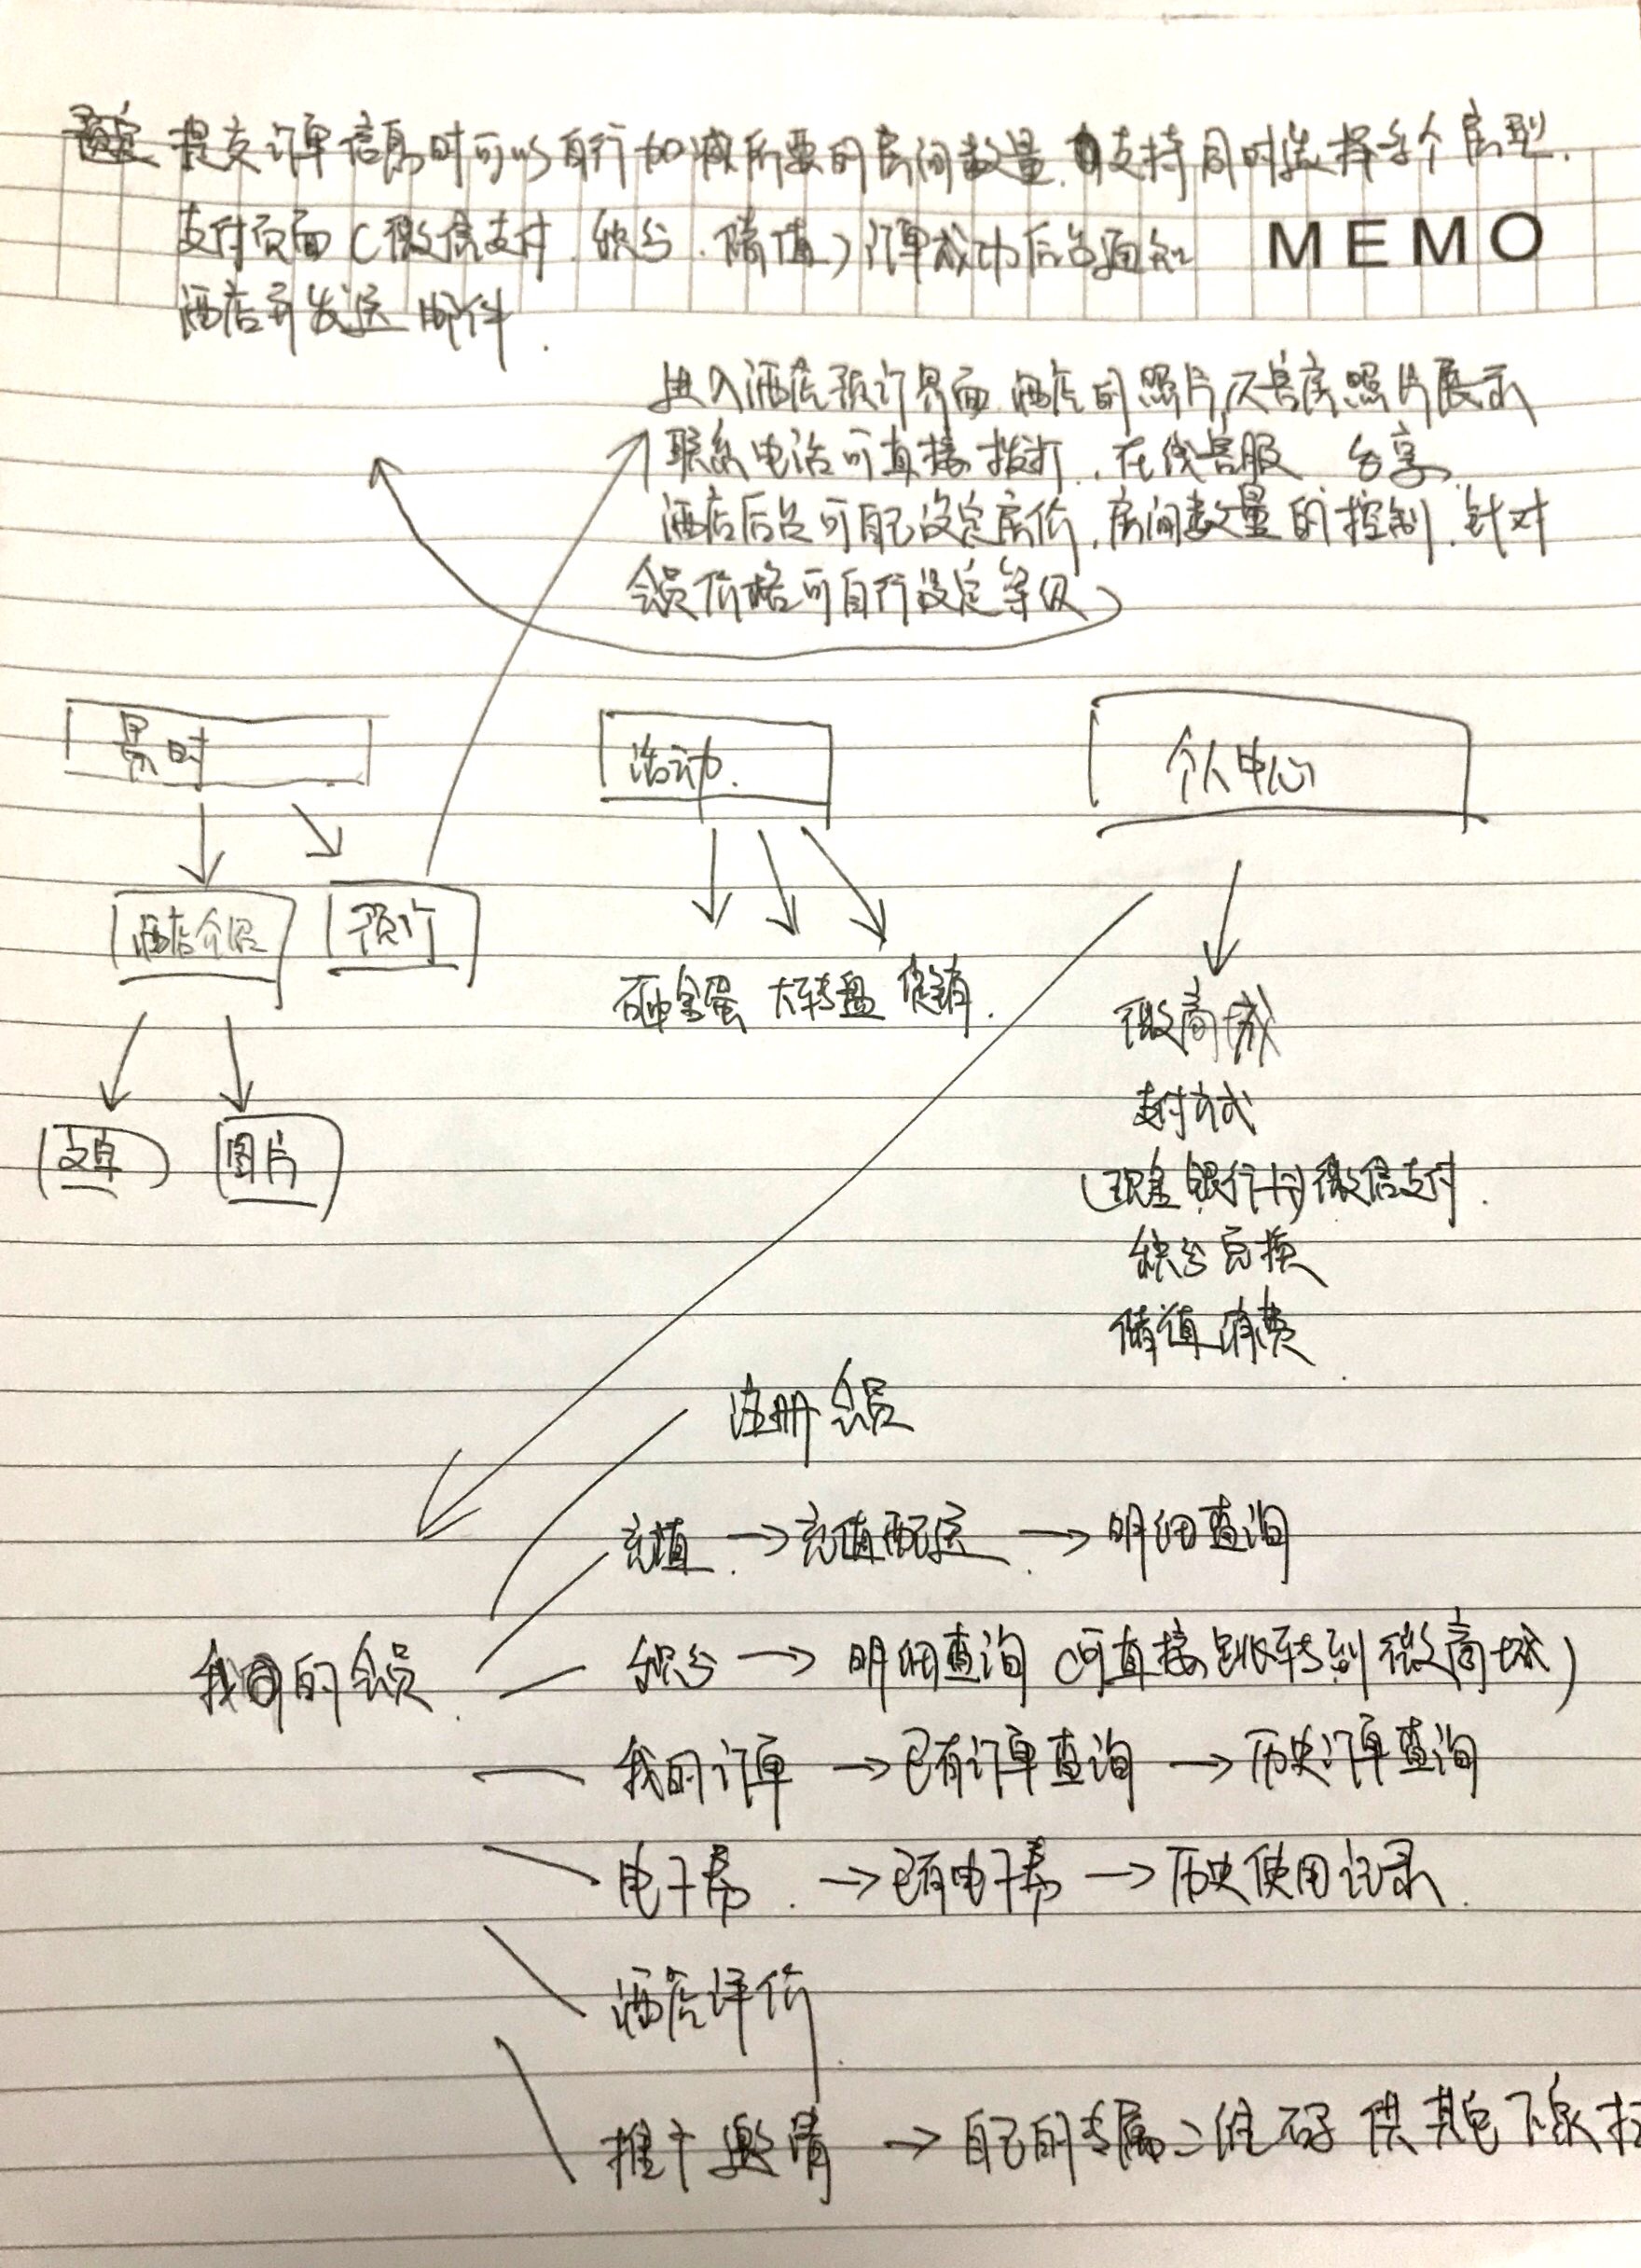 提交订单信息时可以自行加减所要的房间数量.支持同时选择多个房型.
支付页面(微信支付.积分.储值)订单成功后台通知
MEMO
酒店并发送邮件.
进入酒店预订界面 酒店的照片及客房照片展示
联系电话可直接拨打.在线客服 分享
酒店后台可自己设定房价.房间数量的控制.针对
会员价格可自行设定等级
累时
活动.
个人中心
酒店介绍
预订
砸金蛋 大转盘 促销.
微商城
文章
图片
支付方式
(现金 银行卡)微信支付.
积分兑换
储值消费
注册会员
充值.→充值 → 明细查询
我的会员.
积分 → 明细查询(可直接跳转到微商城)
我的订单 → 已有订单查询 → 历史订单查询
电子券.→已有电子券 → 历史使用记录.
酒店评价
推广邀请 → 自己的专属二维码 供其它下线扫